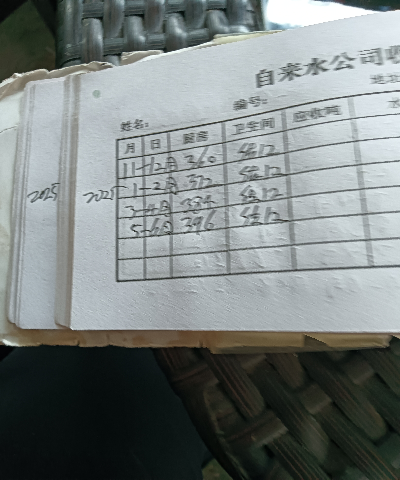 自来水公司收
地址
姓名： 编号：
月 日 厨房 卫生间 应收吨 水
11-12月 360 结12
2025 2025 1-2月 372 结12
3-4月 384 结12
5-6月 396 结12